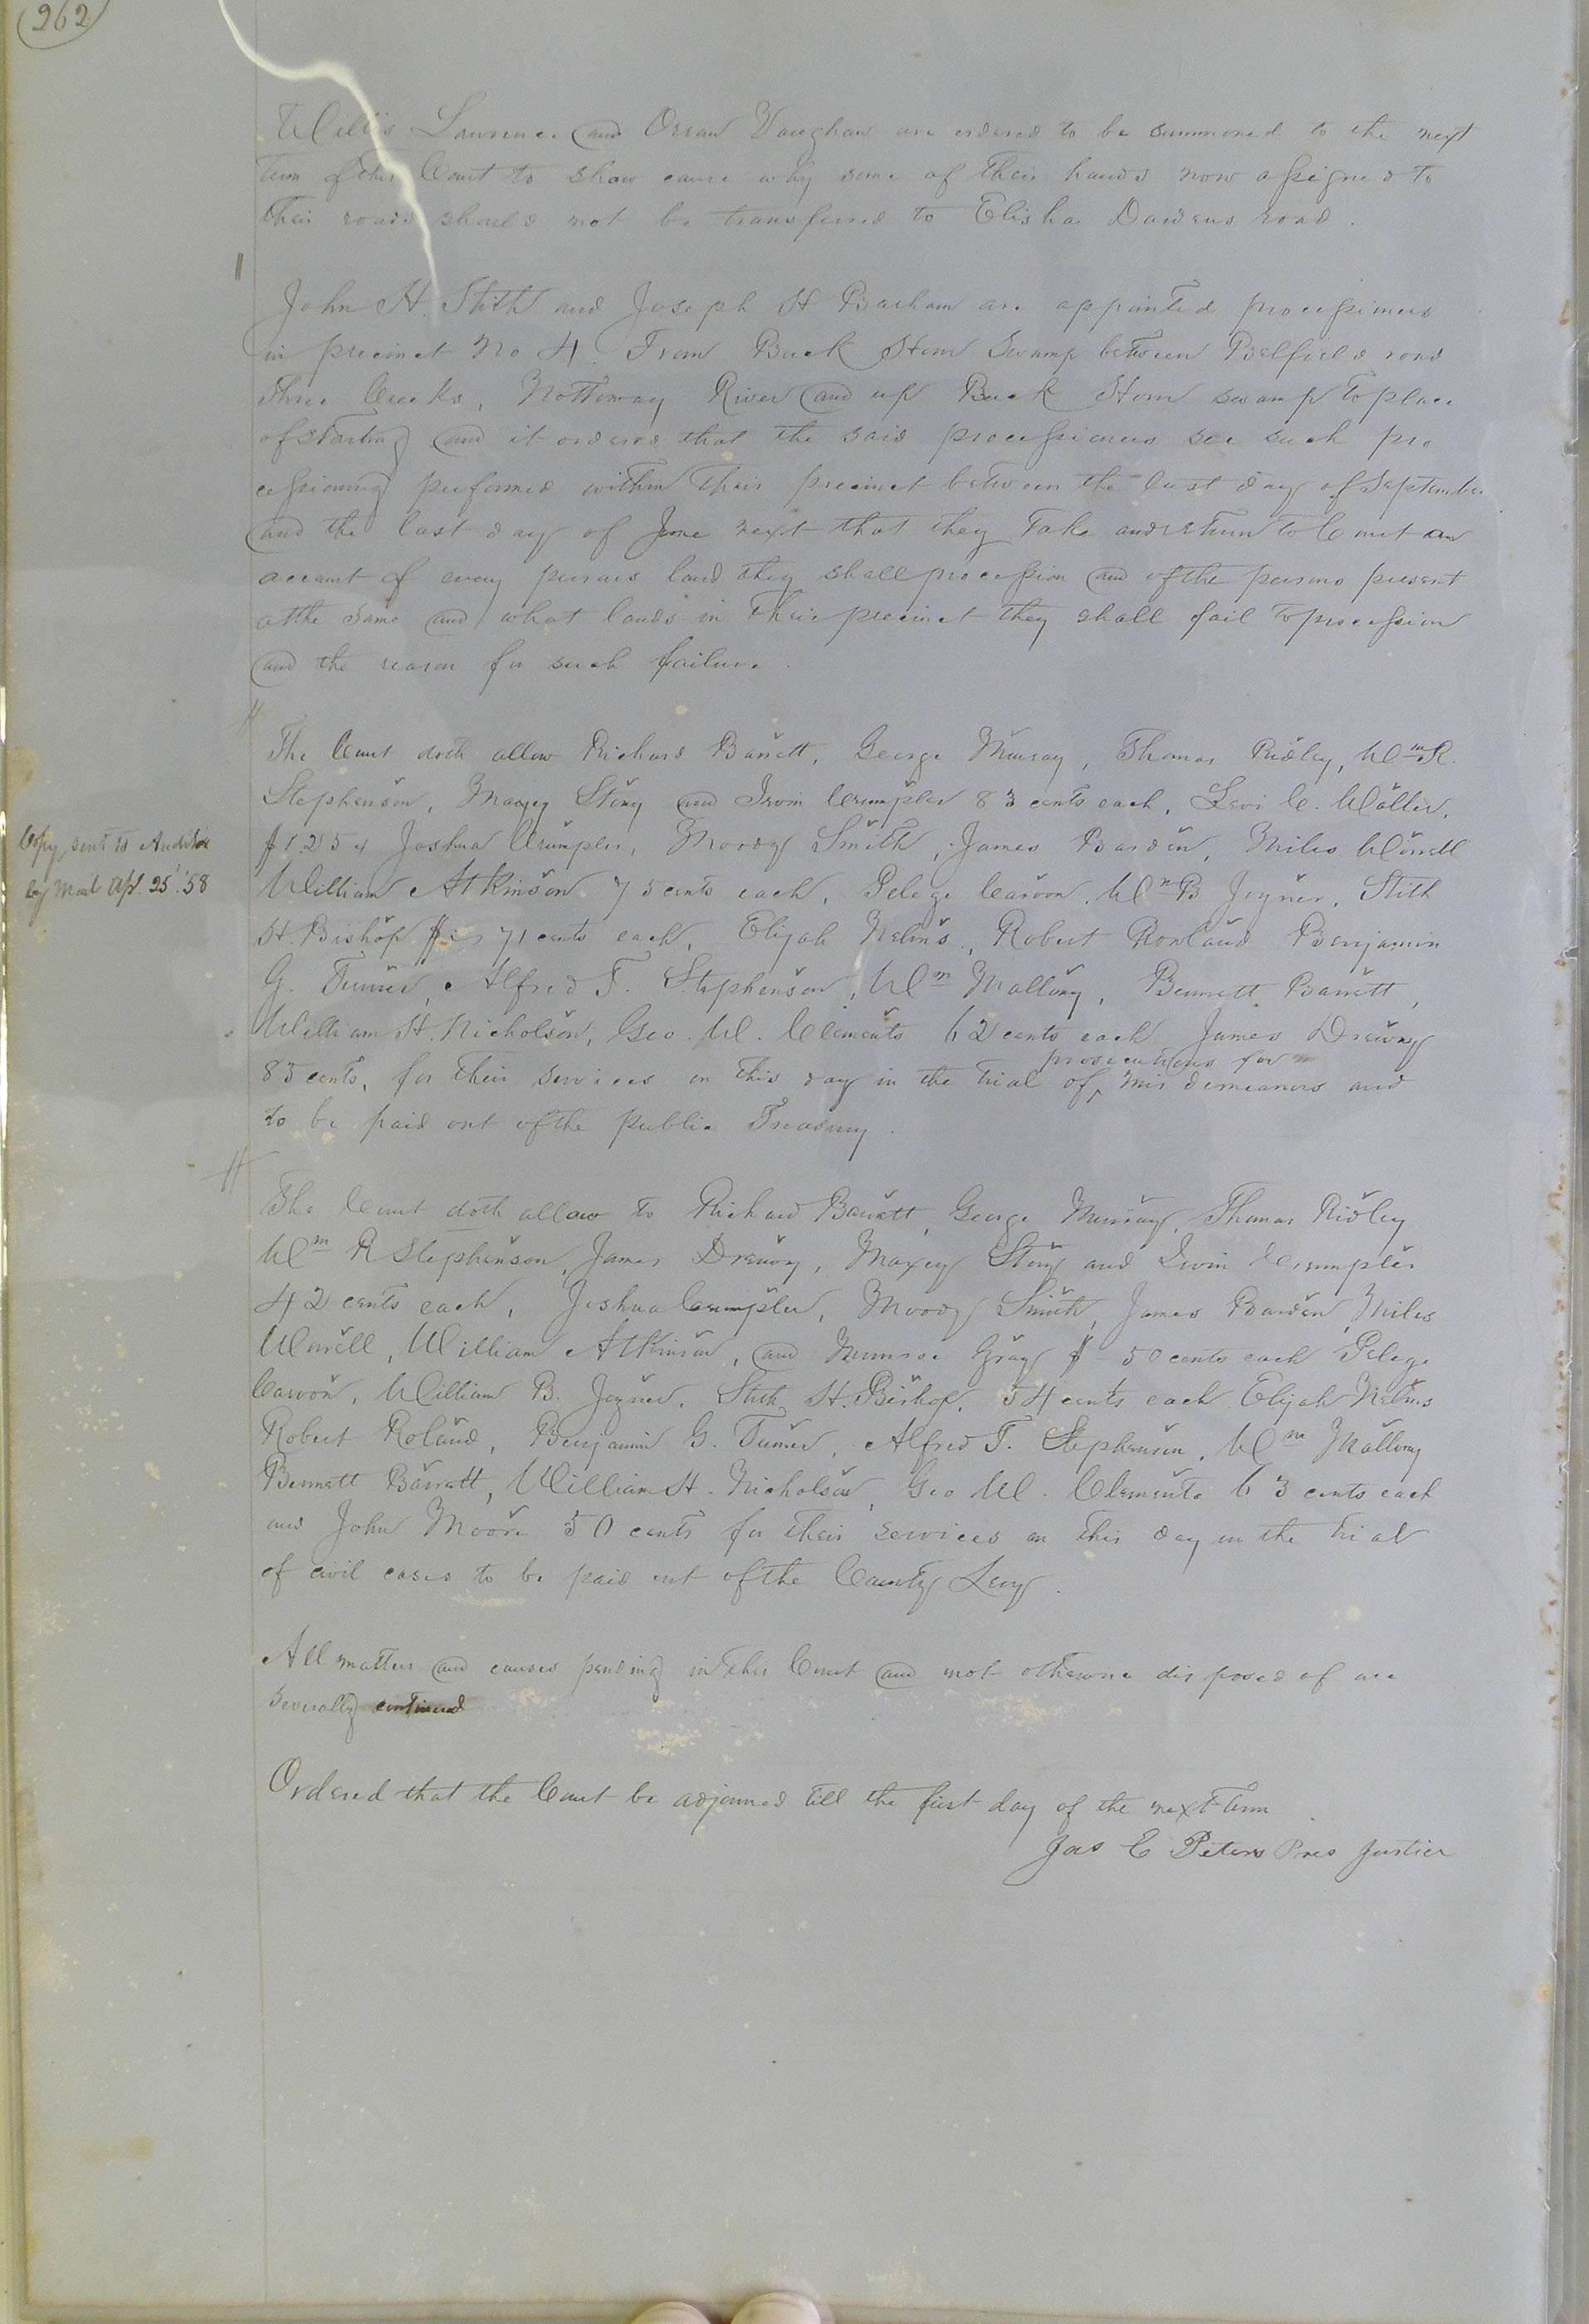 262
Willis Lawrence and Orran Vaughan are ordered to be summoned to the next
term of this Court to show cause why some of their hands now assigned to
their roads should not be transferred to Elisha Dardens road.
John H. Stith and Joseph H Barham are appointed processioners
in precinct No 4. From Buck Horn Swamp between Belfield road
Three Creeks, Nottoway River and up Buck Horn swamp to place
of starting and it ordered that the said processioners see such pro
cessioning performed within their precinct between the last day of September
and the last day of June next that they take and return to Court an
account of every persons land they shall procession and of the persons present
at the same and what lands in their precinct they shall fail to procession
and the reason for such failure.
The Court doth allow Richard Barrett, George Murray, Thomas Ridley, Wm R.
Stephenson, Maxey Story and Irvin Crumpler 83 cents each, Levi C. Waller,
Copy sent to Auditor
by Mail Apl. 25' '58
$1.25 & Joshua Crumpler, Moody Smith, James Barden, Miles Worrell
William Atkinson 75 cents each, Pelege Carson, Wm B Joyner, Stith
H. Bishop $ 71 cents each, Elijah Nelms, Robert Rowland Benjamin
G. Turner, Alfred T. Stephenson, Wm Mallory, Bennett Barrett,
William H. Nicholson, Geo. W. Clements 62 cents each James Drewry
prosecutions for
83 cents, for their services on this day in the trial of ‸ misdemeanors and
to be paid out of the public Treasury.
The Court doth allow to Richard Barrett, George Murray, Thomas Ridley
Wm R Stephenson, James Drewry, Maxey Story and Irvin Crumpler
42 cents each, Joshua Crumpler, Moody Smith, James Barden, Miles
Worrell, William Atkinson, and Munroe Gray $ - 50 cents each Pelege
Carson, William B. Joyner, Stith H. Bishop, 54 cents each Elijah Nelms
Robert Roland, Benjamin G. Turner, Alfred T. Stephenson, Wm Mallory
Bennett Barrett, William H. Nicholson, Geo W. Clements 63 cents each
and John Moore 50 cents for their services on this day in the trial
of civil cases to be paid out of the County Levy.
All matters and causes pending in this Court and not otherwise disposed of are
severally continued
Ordered that the Court be adjourned till the first day of the next Term.
Jas E Peters Pres Justice